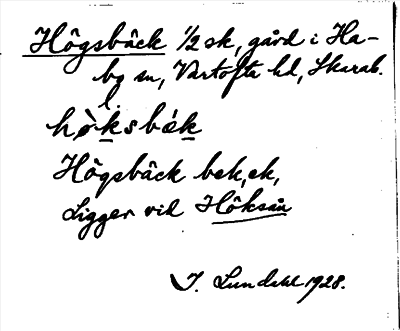 Högsbäck 1/2 sk, gård i Ha-
bo sn, Vartofta hd, Skarab.
l.
hò̤ksbák
Högsbäck bek, ek,
Ligger vid Höksån
I. Lundahl 1928.